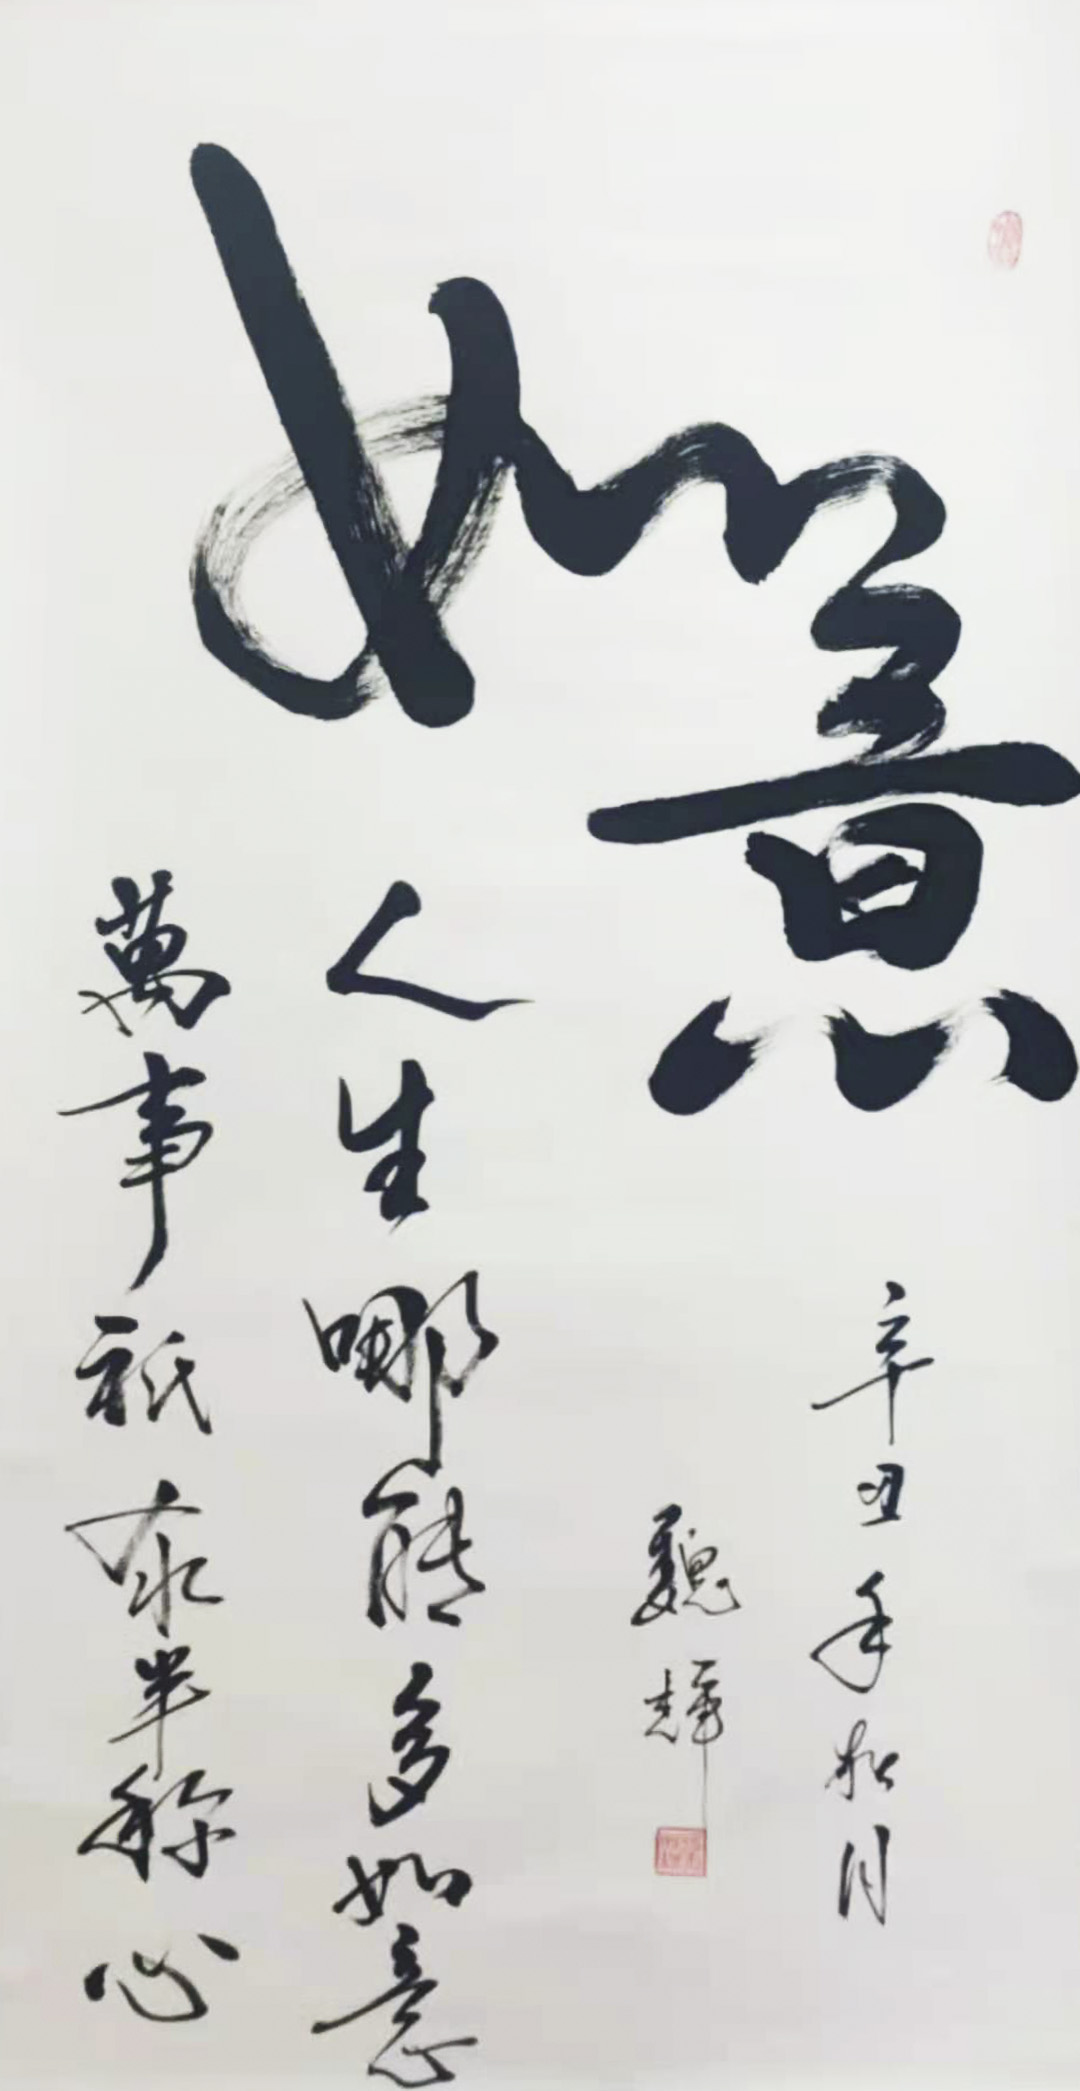 如意
人生哪能多如意
萬事祇求半称心
辛丑年松月
魏輝